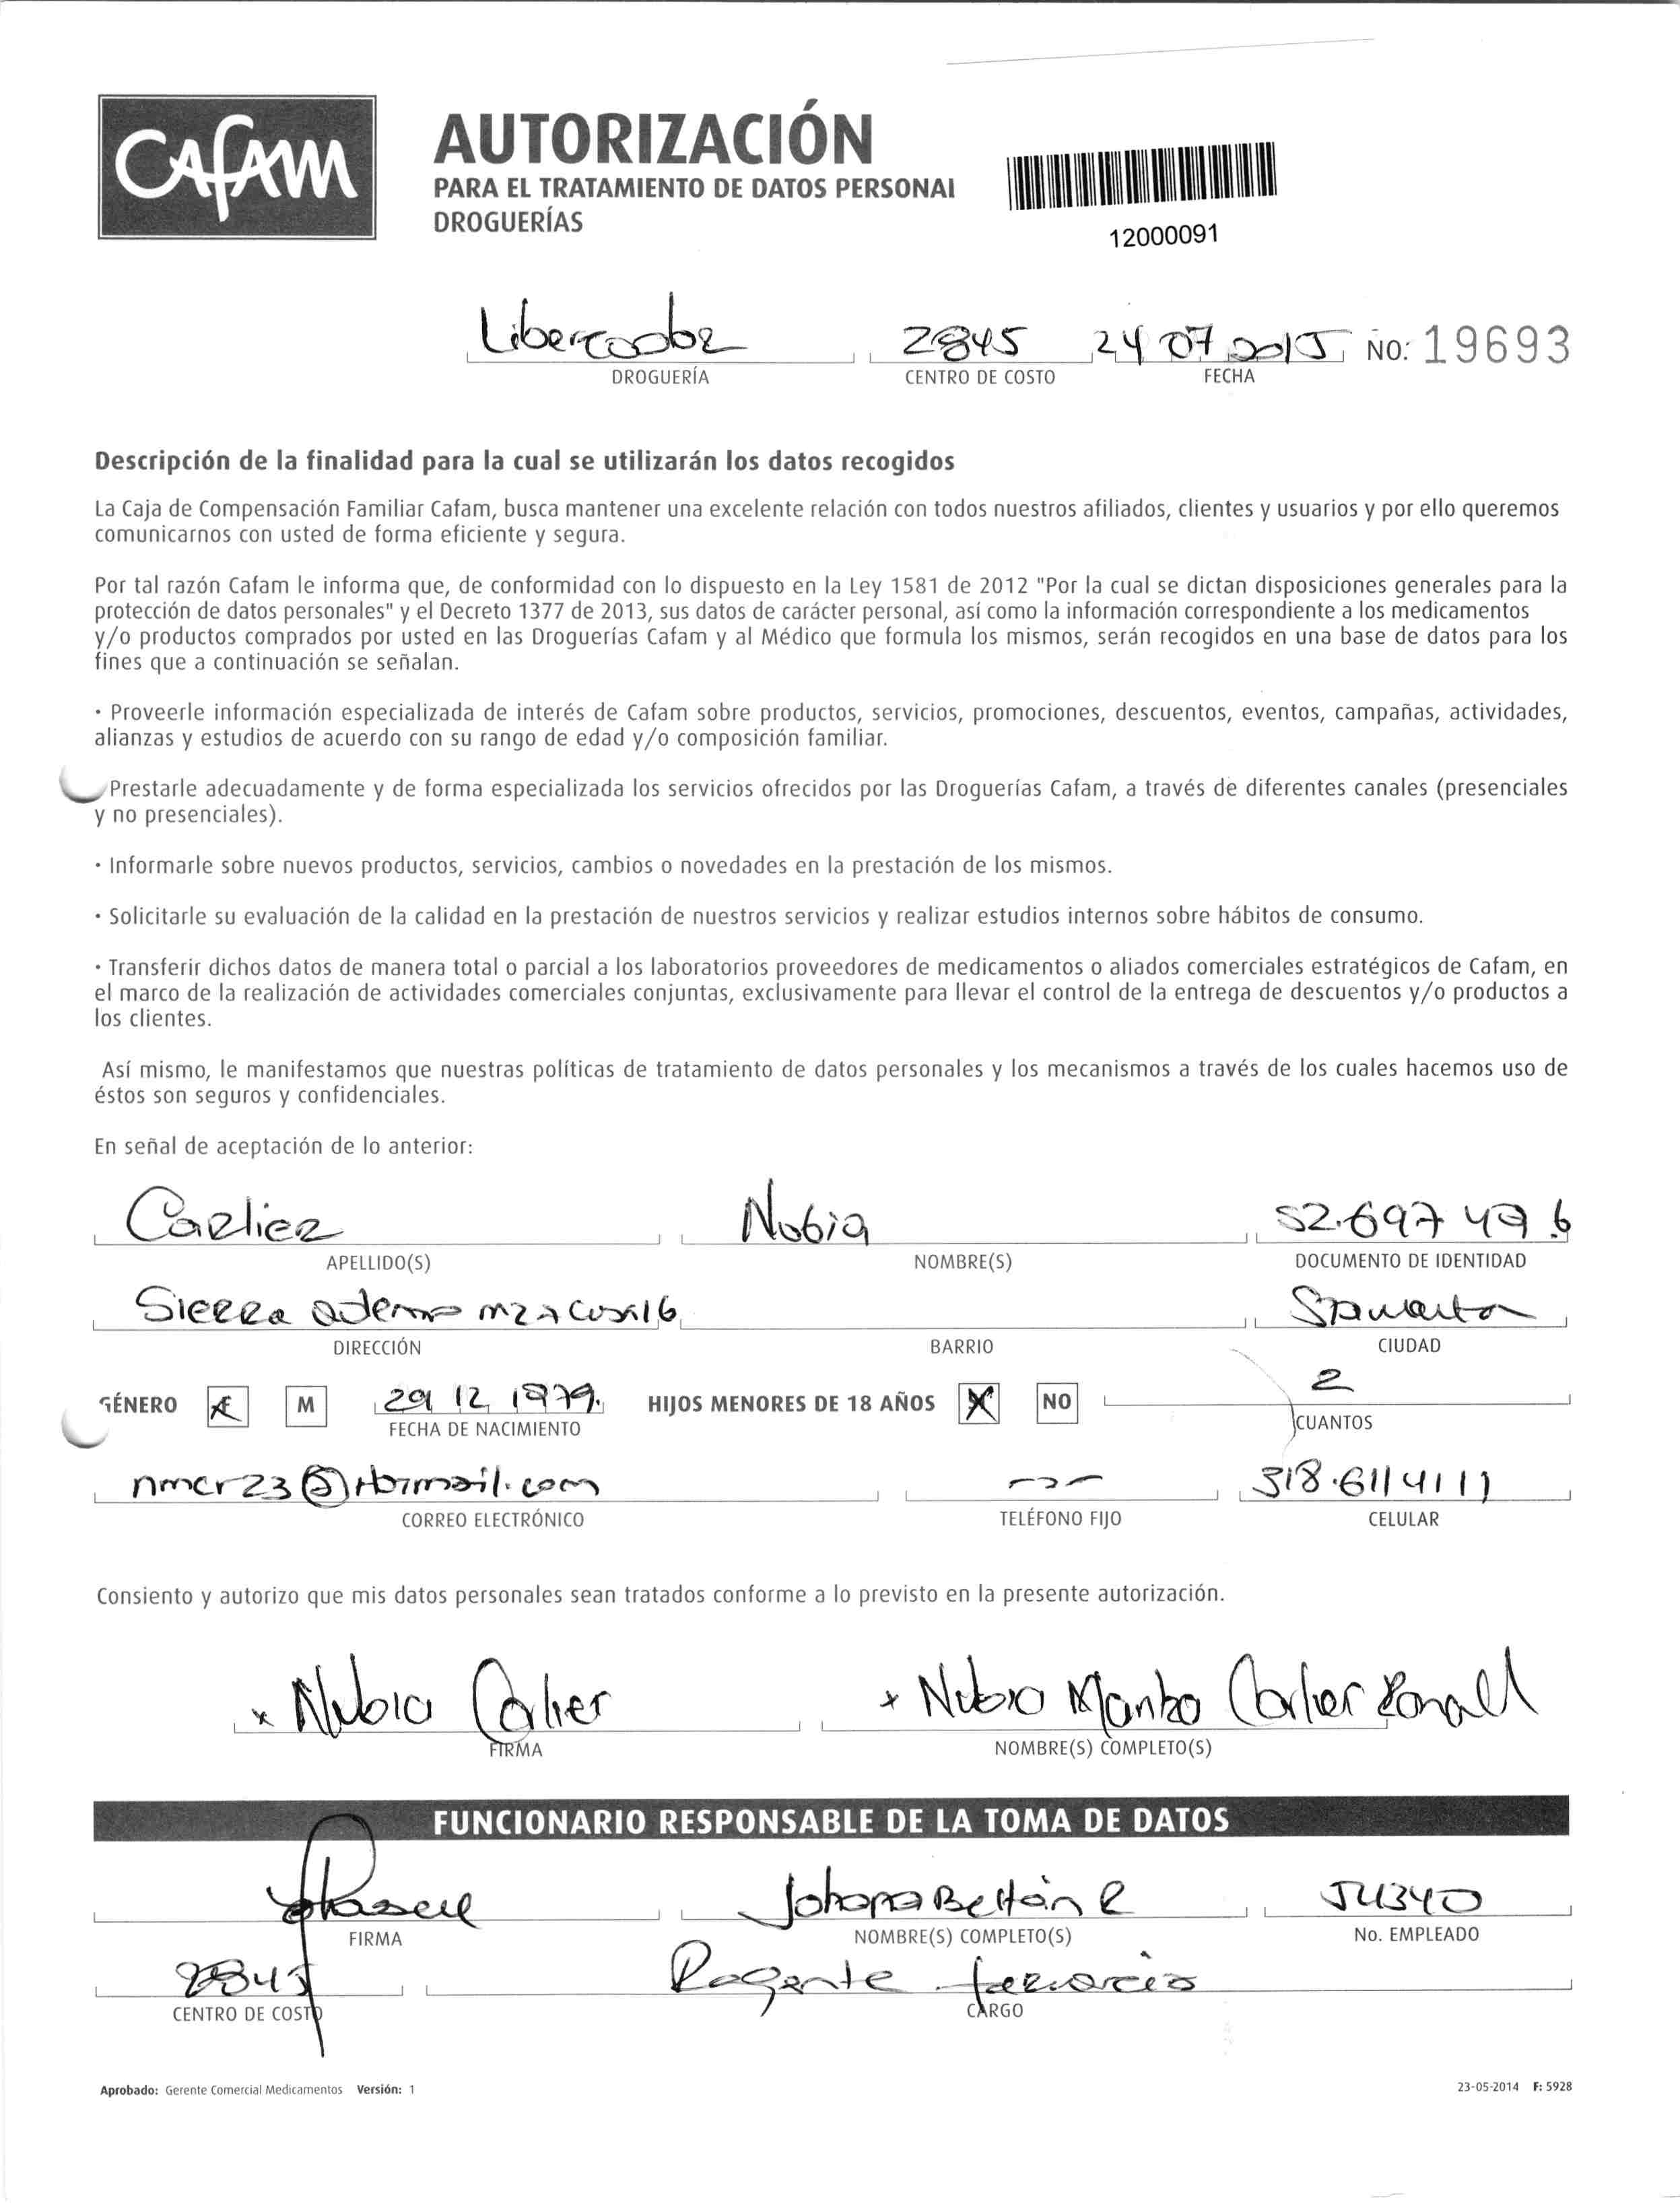 CAFAM
AUTORIZACIÓN
PARA EL TRATAMIENTO DE DATOS PERSONAL
DROGUERÍAS
12000091
2845 24 07 2015 NO: 19693
DROGUERÍA CENTRO DE COSTO FECHA
Descripción de la finalidad para la cual se utilizarán los datos recogidos
La Caja de Compensación Familiar Cafam, busca mantener una excelente relación con todos nuestros afiliados, clientes y usuarios y por ello queremos
comunicarnos con usted de forma eficiente y segura.
Por tal razón Cafam le informa que, de conformidad con lo dispuesto en la Ley 1581 de 2012 "Por la cual se dictan disposiciones generales para la
protección de datos personales" y el Decreto 1377 de 2013, sus datos de carácter personal, así como la información correspondiente a los medicamentos
y/o productos comprados por usted en las Droguerías Cafam y al Médico que formula los mismos, serán recogidos en una base de datos para los
fines que a continuación se señalan.
· Proveerle información especializada de interés de Cafam sobre productos, servicios, promociones, descuentos, eventos, campañas, actividades,
alianzas y estudios de acuerdo con su rango de edad y/o composición familiar.
Prestarle adecuadamente y de forma especializada los servicios ofrecidos por las Droguerías Cafam, a través de diferentes canales (presenciales
y no presenciales).
· Informarle sobre nuevos productos, servicios, cambios o novedades en la prestación de los mismos.
· Solicitarle su evaluación de la calidad en la prestación de nuestros servicios y realizar estudios internos sobre hábitos de consumo.
· Transferir dichos datos de manera total o parcial a los laboratorios proveedores de medicamentos o aliados comerciales estratégicos de Cafam, en
el marco de la realización de actividades comerciales conjuntas, exclusivamente para llevar el control de la entrega de descuentos y/o productos a
los clientes.
Así mismo, le manifestamos que nuestras políticas de tratamiento de datos personales y los mecanismos a través de los cuales hacemos uso de
éstos son seguros y confidenciales.
En señal de aceptación de lo anterior:
Carlier Nubia 52.697 496
APELLIDO(S) NOMBRE(S) DOCUMENTO DE IDENTIDAD
Sierra
DIRECCIÓN BARRIO CIUDAD
GÉNERO F M 29 12 1979. HIJOS MENORES DE 18 AÑOS X NO 2
FECHA DE NACIMIENTO CUANTOS
nmcr23@Hotmail.com --- 318.6114111
CORREO ELECTRÓNICO TELÉFONO FIJO CELULAR
Consiento y autorizo que mis datos personales sean tratados conforme a lo previsto en la presente autorización.
x Nubia Carlier x Nubia Carlier
FIRMA NOMBRE(S) COMPLETO(S)
FUNCIONARIO RESPONSABLE DE LA TOMA DE DATOS
Johana Beltrán R 54340
FIRMA NOMBRE(S) COMPLETO(S) No. EMPLEADO
2845 Regente farmacia
CENTRO DE COSTO CARGO
Aprobado: Gerente Comercial Medicamentos Versión: 1 23-05-2014 F: 5928